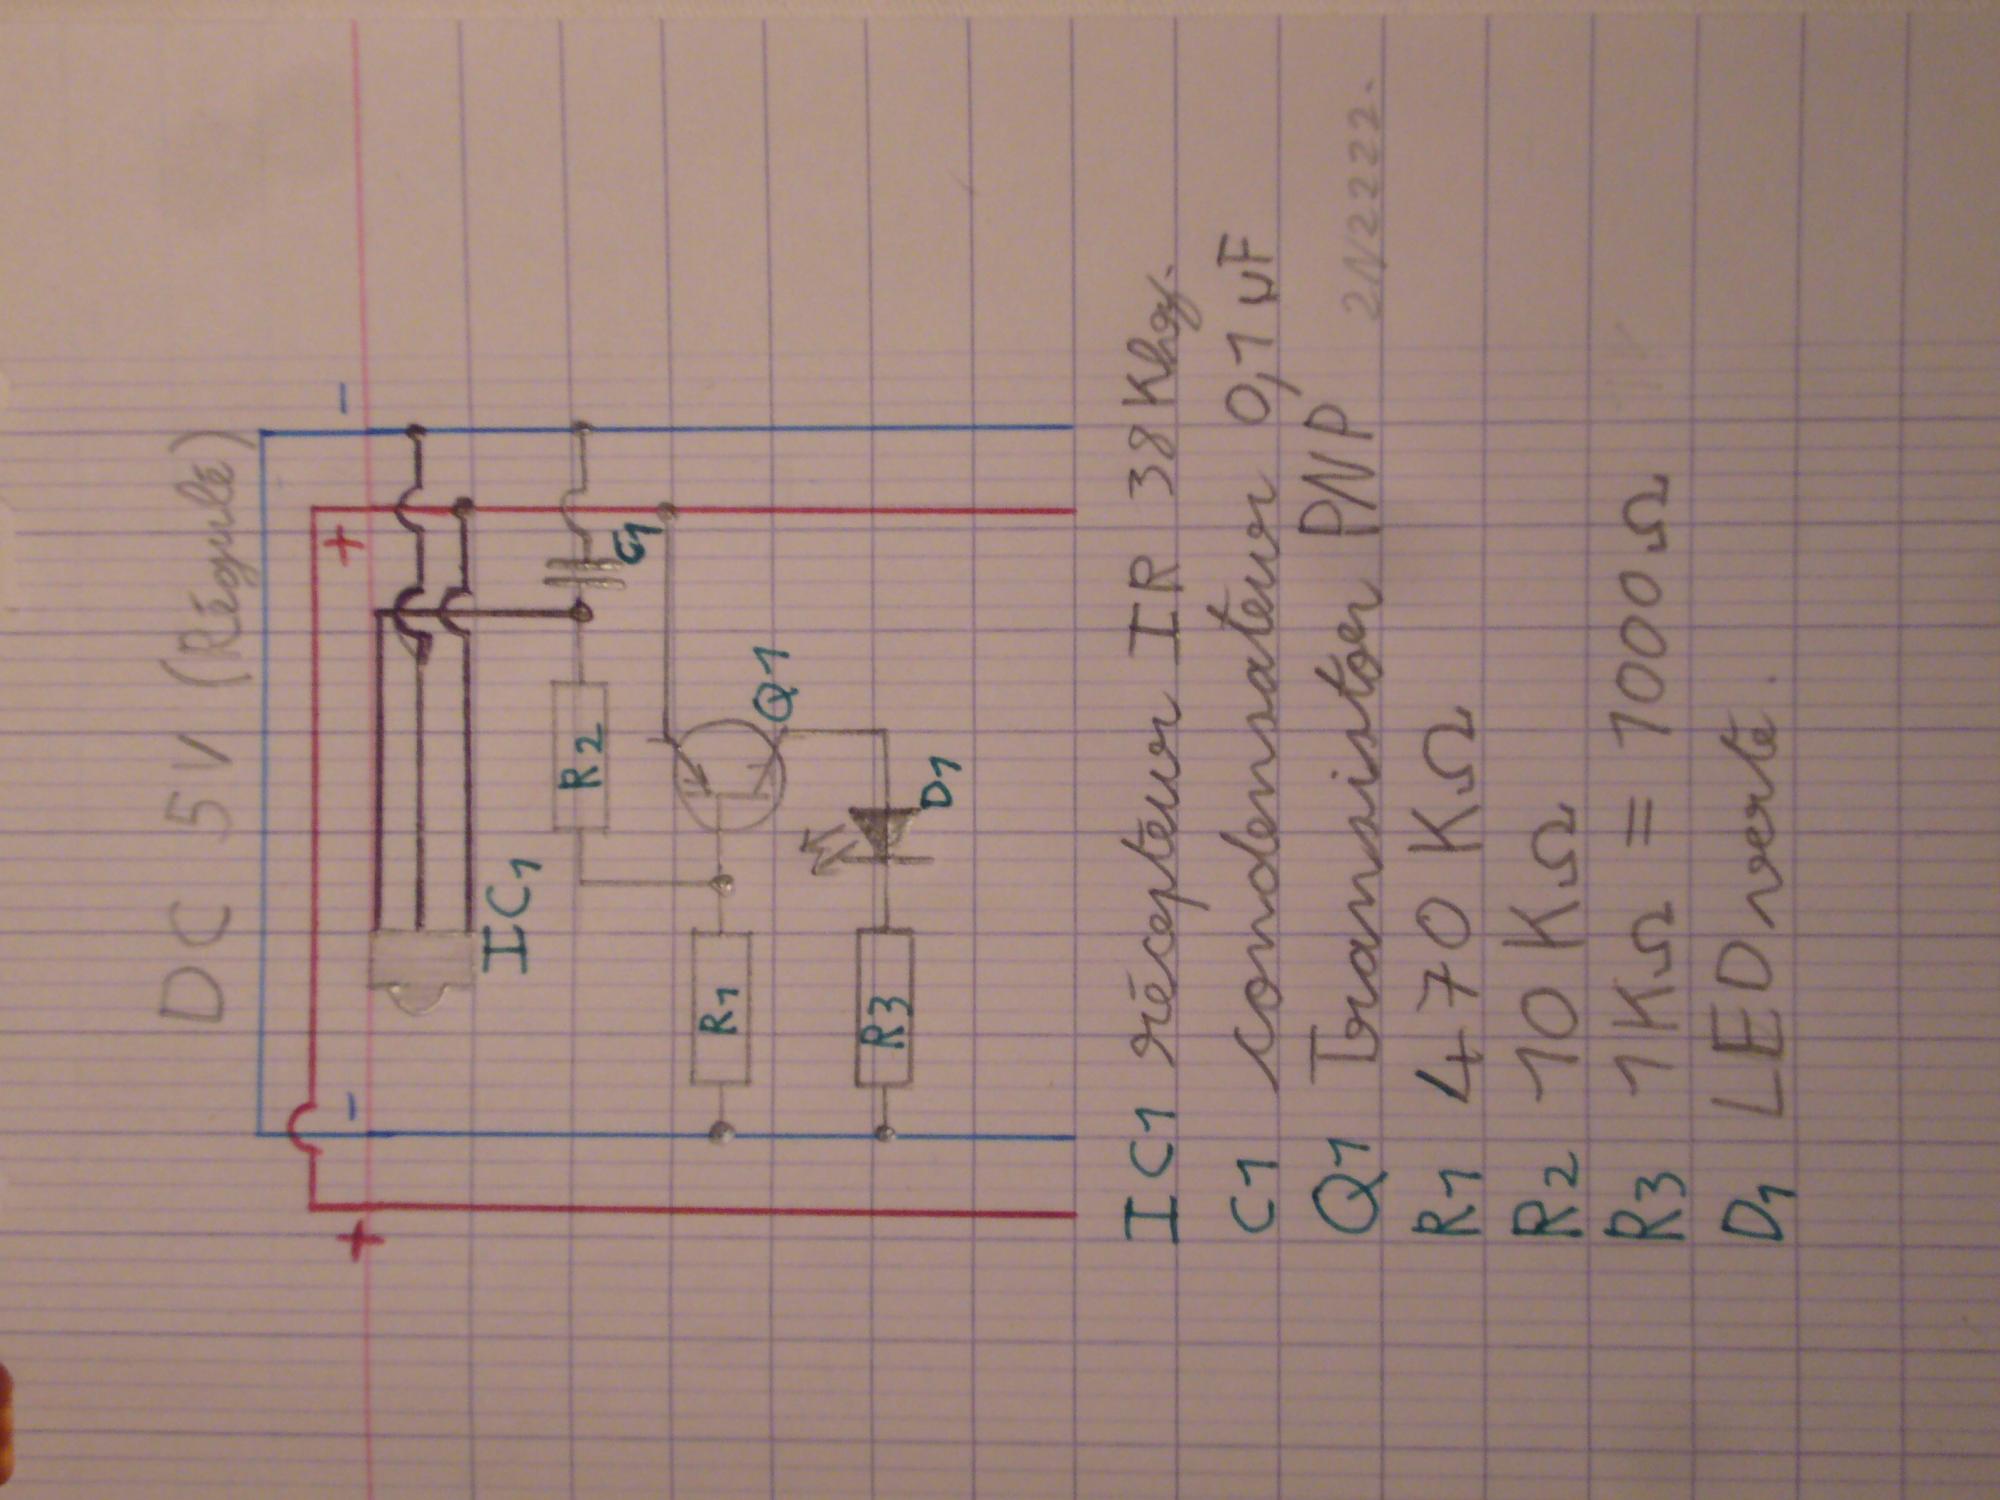 DC 5V (Régulé)
+ - + -
IC1
R2
C1
R1
Q1
R3
D1
IC1 récepteur IR 38 Khz.
C1 condensateur 0,1 µF
Q1 Transistor PNP 2N2222.
R1 470 KΩ
R2 10 KΩ
R3 1KΩ = 1000Ω
D1 LED verte.